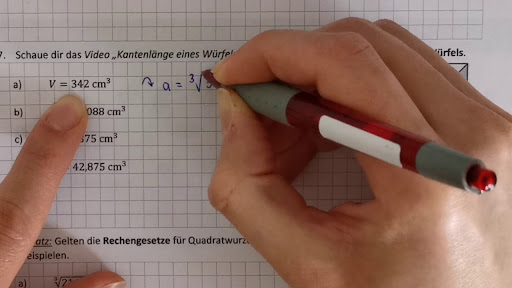 7. Schaue dir das Video „Kantenlänge eines Würfe Würfels.
a) V = 342 cm³ ↷ a = ³√
b) 088 cm³
c) 875 cm³
42,875 cm³
atz: Gelten die Rechengesetze für Quadratwurz
eispielen.
a)